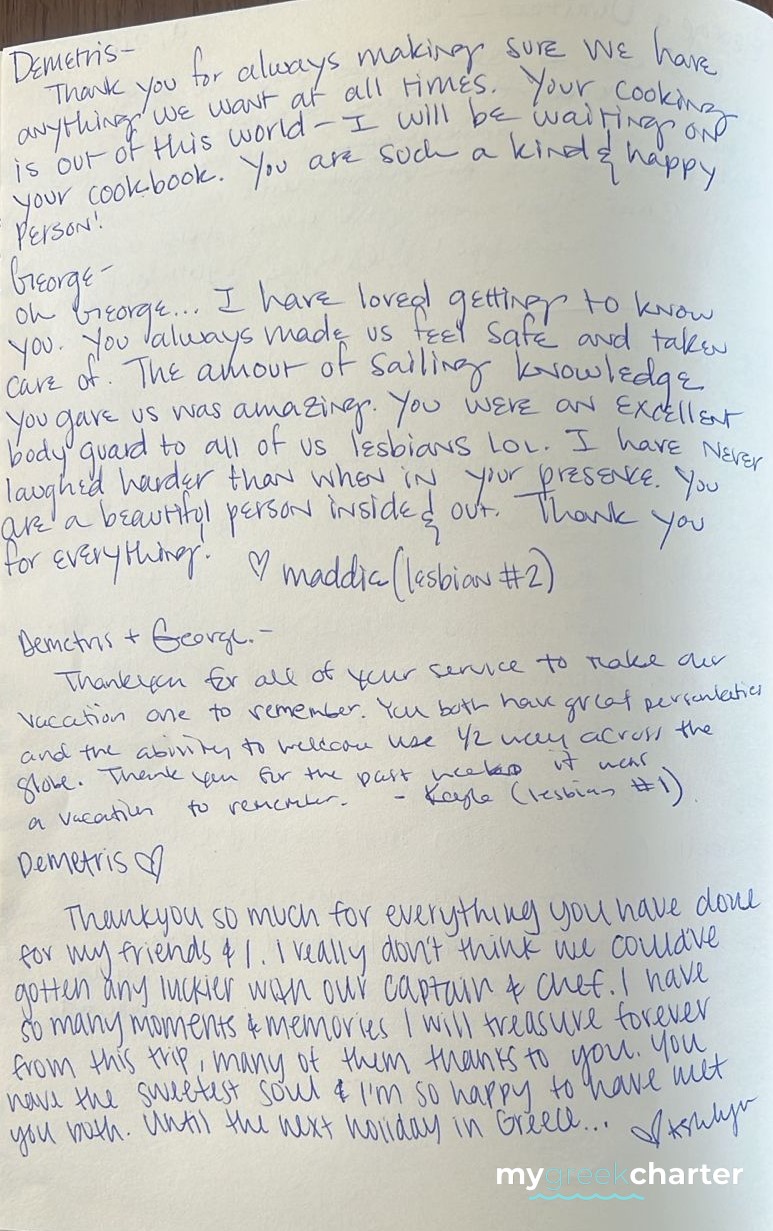 Demetris-
Thank you for always making sure we have
anything we want at all times. Your cooking
is out of this world - I will be waiting on
your cookbook. You are such a kind & happy
person!
George-
Oh George... I have loved getting to know
you. You always made us feel safe and taken
care of. The amour of sailing knowledge
you gave us was amazing. You were an excellent
body guard to all of us lesbians LOL. I have never
laughed harder than when in your presence. You
are a beautiful person inside & out. Thank you
for everything!
♡ maddie (lesbian #2)
Demetris + George.-
Thankyou for all of your service to make our
vacation one to remember. You both have great personalities
and the ability to welcome use 1/2 way across the
globe. Thank you for the past week it was
a vacation to remember. - Kayla (lesbian #1)
Demetris ♡
Thankyou so much for everything you have done
for my friends & I. I really don't think we could've
gotten any luckier with our captain & chef. I have
so many moments & memories I will treasure forever
from this trip, many of them thanks to you. You
have the sweetest soul & I'm so happy to have met
you both. Until the next holiday in Greece... ♡ Ashlyn
mygreekcharter